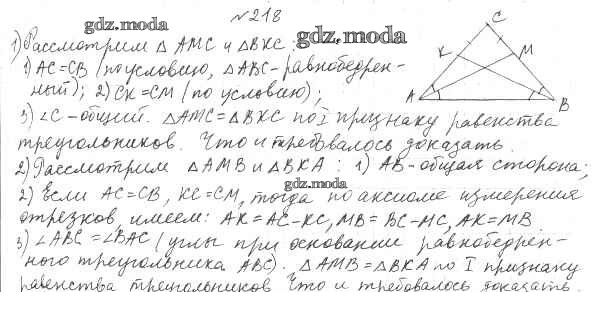 №218
gdz.moda
gdz.moda
1) Рассмотрим △ AMC и △ BKC :
1) AC=CB (по условию, △ ABC - равнобедрен-
ный); 2) CK=CM (по условию);
3) ∠C - общий. △AMC=△BKC по I признаку равенства
треугольников. Что и требовалось доказать.
2) Рассмотрим △AMB и △BKA : 1) AB-общая сторона;
gdz.moda
2) Если AC=CB, KC=CM, тогда по аксиоме измерения
отрезков, имеем: AK=AC-KC, MB=BC-MC, AK=MB
3) ∠ABC=∠BAC (углы при основании равнобедрен-
ного треугольника ABC). △AMB=△BKA по I признаку
равенства треугольников Что и требовалось доказать.
C
K
M
A
B